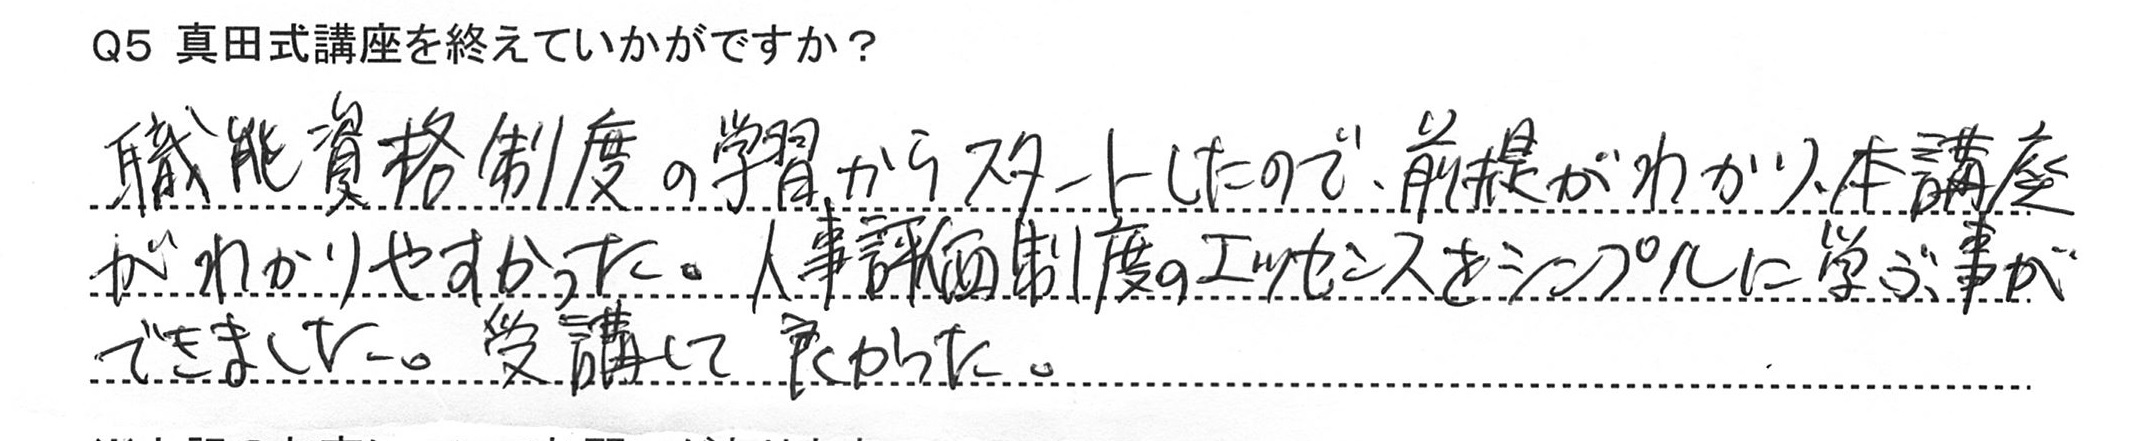 Q5 真田式講座を終えていかがですか？
職能資格制度の学習からスタートしたので、前提がわかり、本講座
がわかりやすかった。人事評価制度のエッセンスをシンプルに学ぶ事が
できました。受講して良かった。